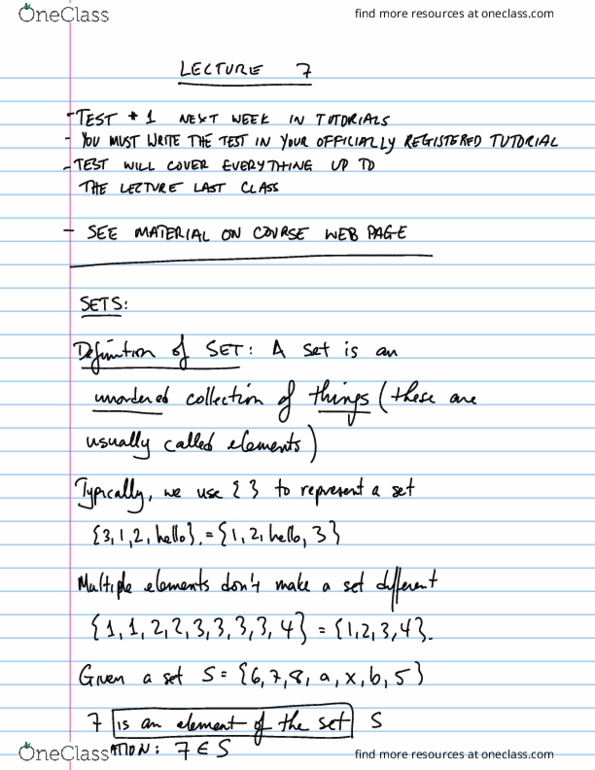 OneClass find more resources at oneclass.com
LECTURE 7
- TEST # 1 NEXT WEEK IN TUTORIALS
- YOU MUST WRITE THE TEST IN YOUR OFFICIALLY REGISTERED TUTORIAL
- TEST WILL COVER EVERYTHING UP TO
THE LECTURE LAST CLASS
- SEE MATERIAL ON COURSE WEB PAGE
SETS:
Definition of SET: A set is an
unordered collection of things (these are
usually called elements)
Typically, we use { } to represent a set
{3, 1, 2, hello}. = {1, 2, hello, 3}
Multiple elements don't make a set different
{1, 1, 2, 2, 3, 3, 3, 3, 4} = {1, 2, 3, 4}.
Given a set S = {6, 7, 8, a, x, b, 5}
7 is an element of the set S
ATION: 7 ∈ S
OneClass find more resources at oneclass.com